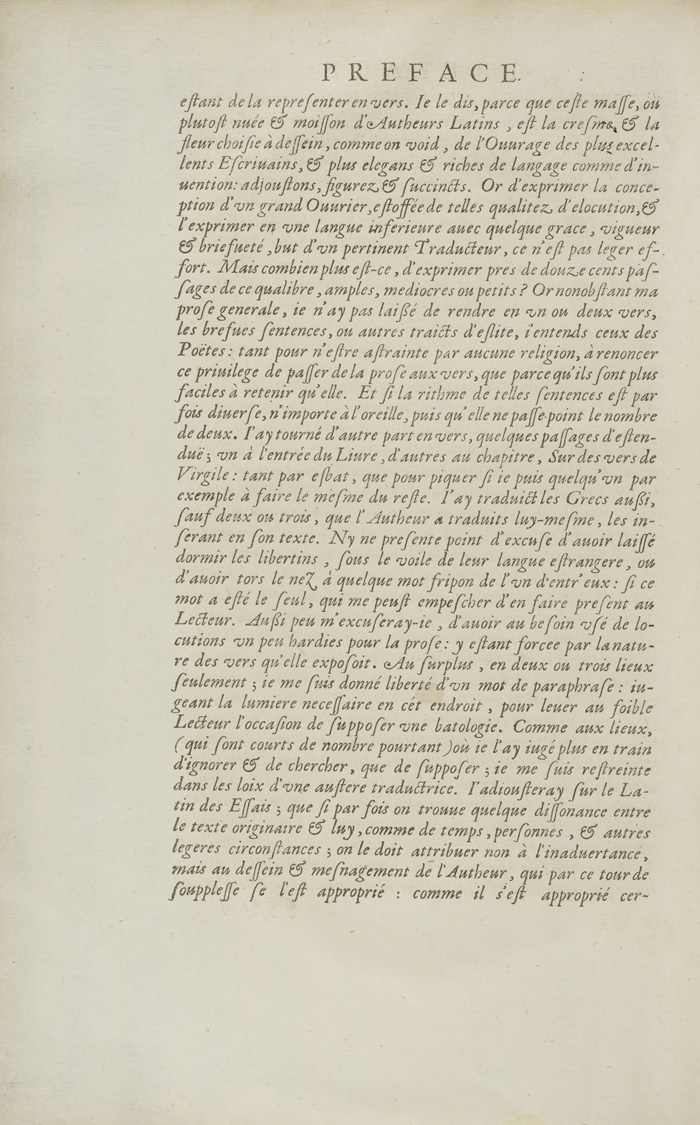 PREFACE.
eſtant de la repreſenter en vers. Ie le dis, parce que ceſte maſſe, ou
plutoſt nuée & moiſſon d'Autheurs Latins, eſt la creſme, & la
fleur choiſie à deſſein, comme on void, de l'Ouurage des plus excel-
lents Eſcriuains, & plus elegans & riches de langage comme d'in-
uention: adjouſtons, figurez & ſuccincts. Or d'exprimer la conce-
ption d'vn grand Ouurier, eſtoffée de telles qualitez d'elocution, &
l'exprimer en vne langue inferieure auec quelque grace, vigueur
& briefueté, but d'vn pertinent Traducteur, ce n'eſt pas leger ef-
fort. Mais combien plus eſt-ce, d'exprimer pres de douze cents paſ-
ſages de ce qualibre, amples, mediocres ou petits? Or nonobſtant ma
proſe generale, ie n'ay pas laiſſé de rendre en vn ou deux vers,
les brefues ſentences, ou autres traicts d'eſlite, i'entends ceux des
Poëtes: tant pour n'eſtre aſtrainte par aucune religion, à renoncer
ce priuilege de paſſer de la proſe aux vers, que parce qu'ils ſont plus
faciles à retenir qu'elle. Et ſi la rithme de telles ſentences eſt par
fois diuerſe, n'importe à l'oreille, puis qu'elle ne paſſe point le nombre
de deux. I'ay tourné d'autre part en vers, quelques paſſages d'eſten-
duë; vn à l'entrée du Liure, d'autres au chapitre, Sur des vers de
Virgile: tant par eſbat, que pour piquer ſi ie puis quelqu'vn par
exemple à faire le meſme du reſte. I'ay traduict les Grecs auſſi,
ſauf deux ou trois, que l'Autheur a traduits luy-meſme, les in-
ſerant en ſon texte. Ny ne preſente point d'excuſe d'auoir laiſſé
dormir les libertins, ſous le voile de leur langue eſtrangere, ou
d'auoir tors le nez à quelque mot fripon de l'vn d'entr'eux: ſi ce
mot a eſté le ſeul, qui me peuſt empeſcher d'en faire preſent au
Lecteur. Auſſi peu m'excuſeray-ie, d'auoir au beſoin vſé de lo-
cutions vn peu hardies pour la proſe: y eſtant forcee par la natu-
re des vers qu'elle expoſoit. Au ſurplus, en deux ou trois lieux
ſeulement; ie me ſuis donné liberté d'vn mot de paraphraſe: iu-
geant la lumiere neceſſaire en cét endroit, pour leuer au foible
Lecteur l'occaſion de ſuppoſer vne batologie. Comme aux lieux,
(qui ſont courts de nombre pourtant) où ie l'ay iugé plus en train
d'ignorer & de chercher, que de ſuppoſer; ie me ſuis reſtreinte
dans les loix d'vne auſtere traductrice. I'adiouſteray ſur le La-
tin des Eſſais; que ſi par fois on trouue quelque diſſonance entre
le texte originaire & luy, comme de temps, perſonnes, & autres
legeres circonſtances; on le doit attribuer non à l'inaduertance,
mais au deſſein & meſnagement de l'Autheur, qui par ce tour de
ſouppleſſe ſe l'eſt approprié: comme il s'eſt approprié cer-